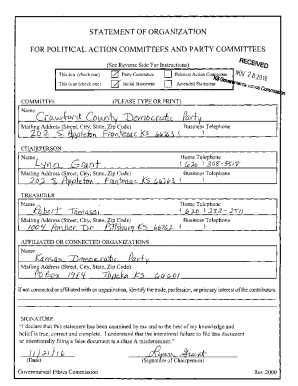 STATEMENT OF ORGANIZATION
FOR POLITICAL ACTION COMMITTEES AND PARTY COMMITTEES
(See Reverse Side For Instructions)
RECEIVED
This is a (check one) Party Committee Political Action Committee
NOV 28 2016
This is an (check one) Initial Statement Amended Statement
KS Governmental Ethics Commission
COMMITTEE (PLEASE TYPE OR PRINT)
Name
Crawford County Democratic Party
Mailing Address (Street, City, State, Zip Code) Business Telephone
202 S. Appleton Frontenac KS 66763 ( )
CHAIRPERSON
Name Home Telephone
Lynn Grant (620) 308-5118
Mailing Address (Street, City, State, Zip Code) Business Telephone
202 S. Appleton, Frontenac KS 66763 ( )
TREASURER
Name Home Telephone
Robert Tomasi (620)
Mailing Address (Street, City, State, Zip Code) Business Telephone
1004 Dr Pittsburg KS 66762 ( )
AFFILIATED OR CONNECTED ORGANIZATIONS
Name
Kansas Democratic Party
Mailing Address (Street, City, State, Zip Code)
PO Box 1914 Topeka KS 66601
If not connected or affiliated with an organization, identify the trade, profession, or primary interest of the contributors.
SIGNATURE:
"I declare that this statement has been examined by me and to the best of my knowledge and
belief is true, correct and complete. I understand that the intentional failure to file this document
or intentionally filing a false document is a class A misdemeanor."
11/21/16 Lynn Grant
(Date) (Signature of Chairperson)
Governmental Ethics Commission Rev.2000